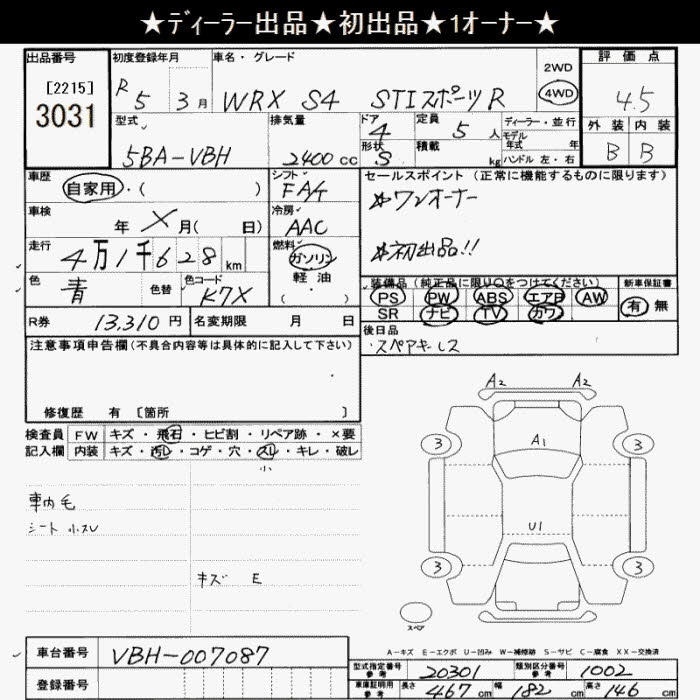 ★ディーラー出品★初出品★1オーナー★
出品番号 初度登録年月 車名・グレード 2WD 評価点
[2215] R 5 3月 WRX S4 STIスポーツR 4WD 4.5
3031
型式 排気量 ドア 4 定員 5人 ディーラー・並行 外装 内装
モデル年式 年
5BA-VBH 2400cc 形状 S 積載 kg ハンドル 左・右 B B
車歴 シフト セールスポイント(正常に機能するものに限ります)
自家用・( ) FA/T ☆ワンオーナー
車検 冷房
年 X 月( 日) AAC ☆初出品!!
走行 4万1千628km 燃料 ガソリン
軽油
( )
色 青 色替 色コード K7X
装備品(純正品に限り○をつけてください) 新車保証書
PS PW ABS エアB AW 有 無
SR ナビ TV カワ
R券 13,310円 名変期限 月 日 後日品
注意事項申告欄(不具合内容等は具体的に記入して下さい) ・スペアキーレス
修復歴 有 〔箇所 〕
検査員 FW キズ・飛石・ヒビ割・リペア跡・×要
記入欄 内装 キズ・汚レ・コゲ・穴・スレ・キレ・破レ
小
車内毛
シート 小スレ
キズ E
A2 A2
3 A1 3
U1
3 3
スペア
A-キズ E-エクボ U-凹み W-補修跡 S-サビ C-腐食 XX-交換済
車台番号 VBH-007087
登録番号
型式指定番号参考 20301 類別区分番号参考 1002
車庫証明用参考 長さ 467cm 幅 182cm 高さ 146cm